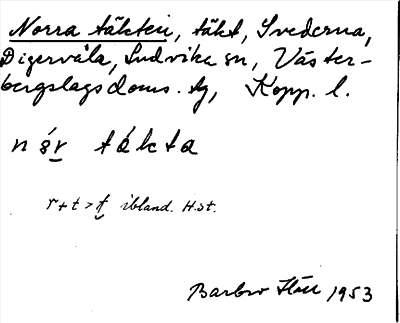 Norra täkten, täkt, Svederna,
Digervåla, Ludvika sn, Väster-
bergslags doms. tg, Kopp. l.
täkta
r+t > ibland. H.st.
Barbro 1953